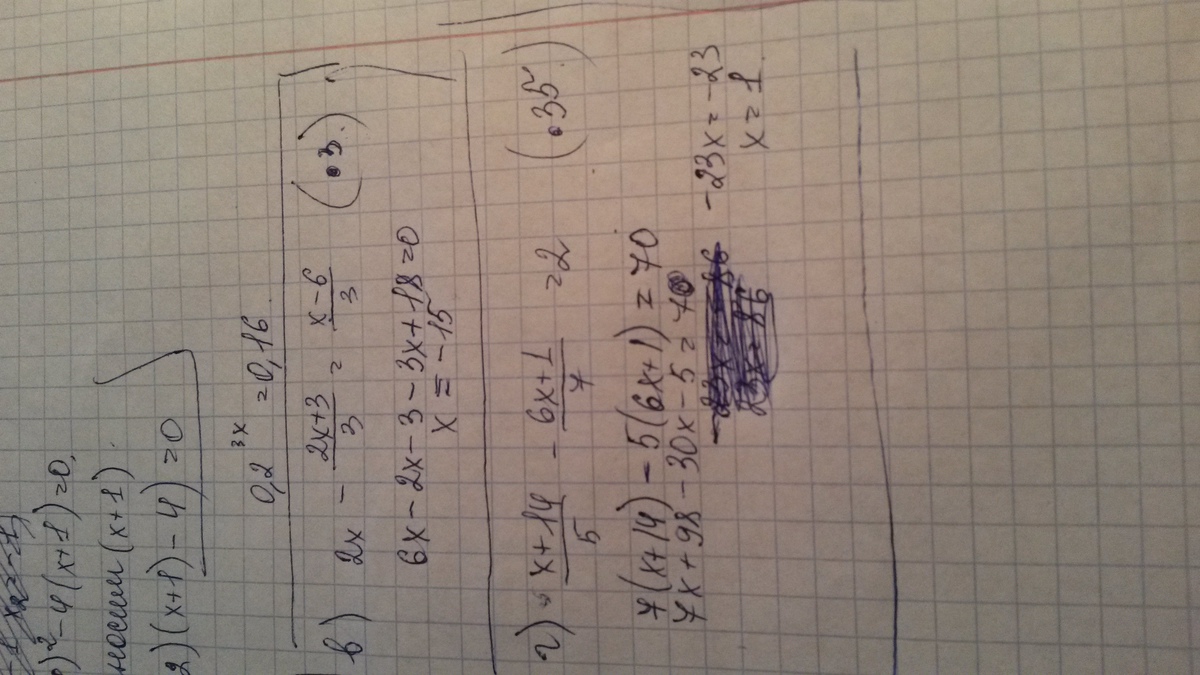 )² - 4(x+1) = 0,
носим (x+1).
2)(x+1) - 4) = 0
0,2^{3x} = 0,16
в) 2x - \frac{2x+3}{3} = \frac{x-6}{3} (·3.)
6x - 2x - 3 - 3x + 18 = 0
x = -15
г) \frac{x+14}{5} - \frac{6x+1}{7} = 2 (·35.)
7(x+14) - 5(6x+1) = 70
7x + 98 - 30x - 5 = 70
-23x = -23
x = 1.